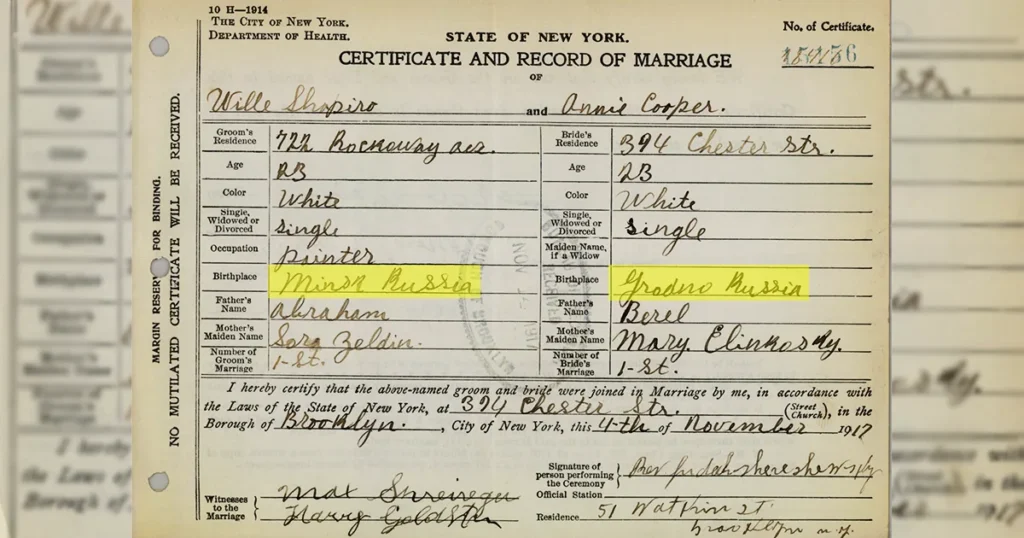 10 H—1914
THE CITY OF NEW YORK.
DEPARTMENT OF HEALTH.
STATE OF NEW YORK.
No. of Certificate.
CERTIFICATE AND RECORD OF MARRIAGE
OF
Wille Shapiro and Annie Cooper.
Groom's Residence 722 Rockaway Bride's Residence 394 Chester Str.
Age 23 Age 23
Color White Color White
Single, Widowed or Divorced single Single, Widowed or Divorced single
Occupation painter Maiden Name, if a Widow
Birthplace Minsk Russia Birthplace Grodno Russia
Father's Name Abraham Father's Name Berel
Mother's Maiden Name Sora Zeldin. Mother's Maiden Name Mary
Number of Groom's Marriage 1-St. Number of Bride's Marriage 1-St.
I hereby certify that the above-named groom and bride were joined in Marriage by me, in accordance with
the Laws of the State of New York, at 394 Chester Str. (Street Church), in the
Borough of Brooklyn. , City of New York, this 4th of November 1917
Signature of person performing the Ceremony Rev Judah
Official Station
Witnesses to the Marriage Max
Harry
Residence 51 Watkin St.
Brooklyn N.Y.
MARGIN RESERVED FOR BINDING.
NO MUTILATED CERTIFICATE WILL BE RECEIVED.